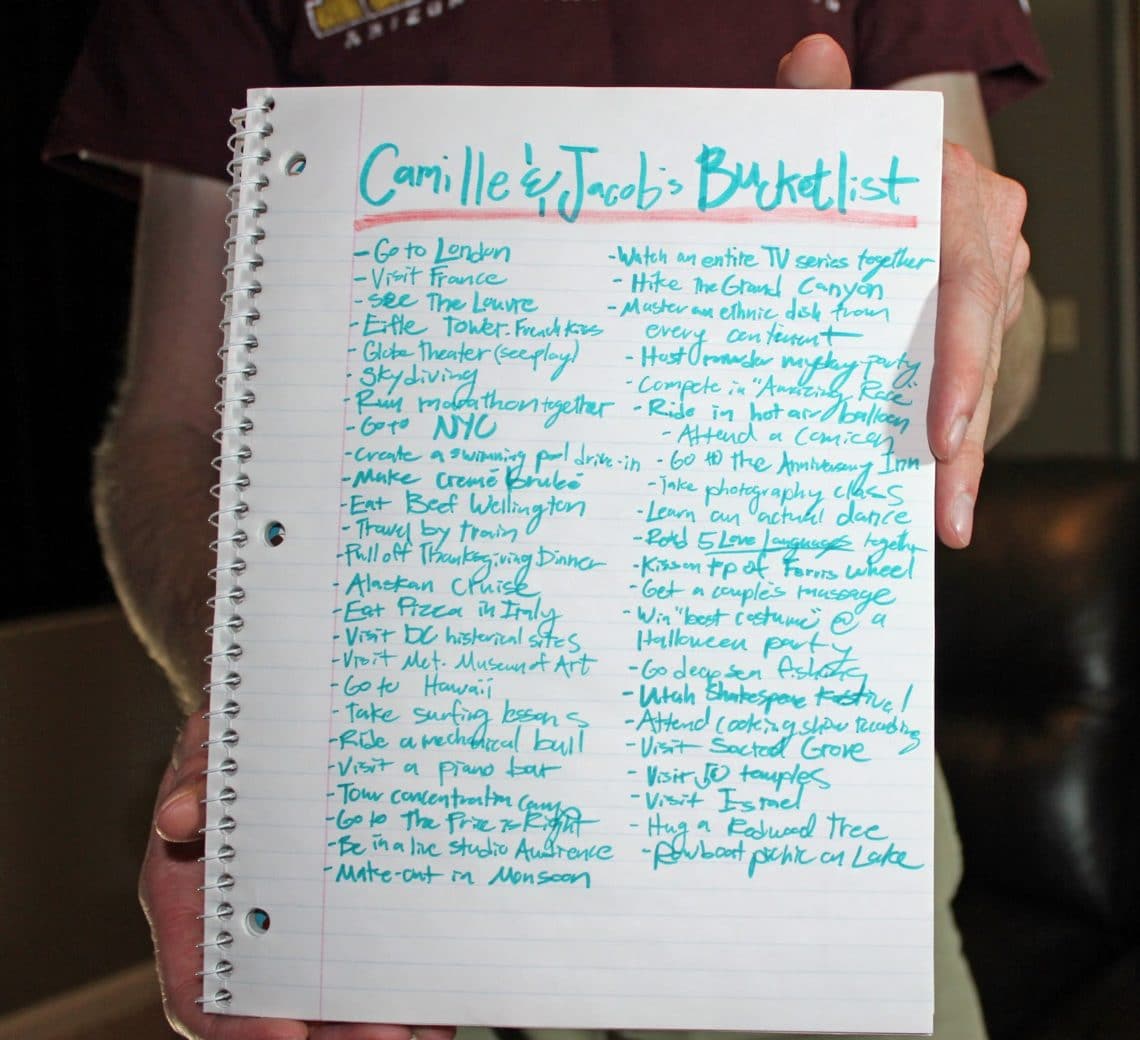 ARIZON
Camille & Jacob's Bucketlist
- Go to London
- Visit France
- See The Louvre
- Eifle Tower-French Kiss
- Globe Theater (see play)
- Skydiving
- Run marathon together
- Go to NYC
- Create a swimming pool drive-in
- Make Cremé Brulée
- Eat Beef Wellington
- Travel by train
- Pull off Thanksgiving Dinner
- Alaskan Cruise
- Eat Pizza in Italy
- Visit DC historical sites
- Visit Met. Museum of Art
- Go to Hawaii
- Take surfing lessons
- Ride a mechanical bull
- Visit a piano bar
- Tour concentration Camp
- Go to The Price is Right
- Be in a live studio Audience
- Make-out in Monsoon
- Watch an entire TV series together
- Hike The Grand Canyon
- Master an ethnic dish from
every continent
- Host murder mystery party
- Compete in "Amazing Race"
- Ride in hot air balloon
- Attend a Comicon
- Go to the Anniversary Inn
- Take photography class
- Learn an actual dance
- Read 5 Love Languages together
- Kiss on top of Ferris wheel
- Get a couple's massage
- Win "best costume" @ a
Halloween party
- Go deep sea fishing
- Utah Shakespeare Festival
- Attend cooking show recording
- Visit Sacred Grove
- Visit 50 temples
- Visit Israel
- Hug a Redwood Tree
- Rowboat picnic on Lake